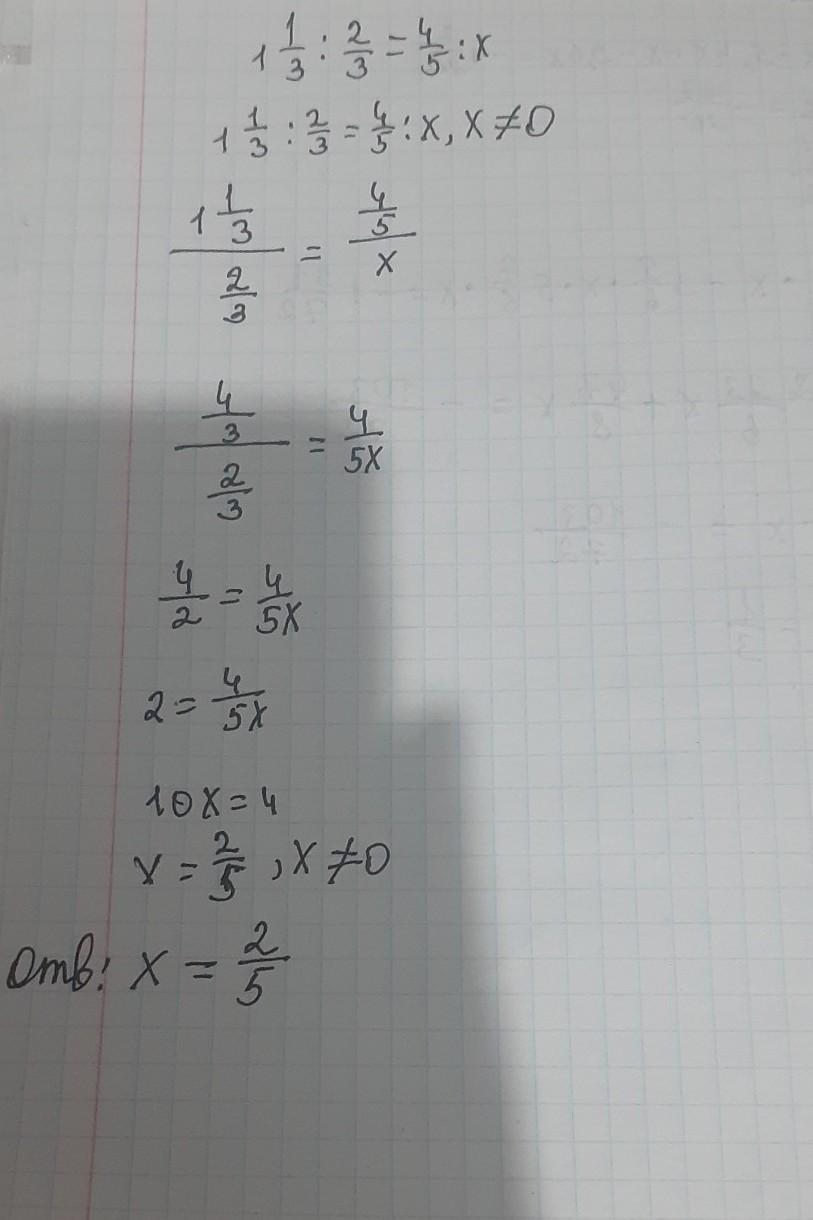 1 1/3 : 2/3 = 4/5 : x
1 1/3 : 2/3 = 4/5 : x, x ≠ 0
(1 1/3)/(2/3) = (4/5)/x
(4/3)/(2/3) = 4/5x
4/2 = 4/5x
2 = 4/5x
10x = 4
x = 2/5, x ≠ 0
Отв: x = 2/5